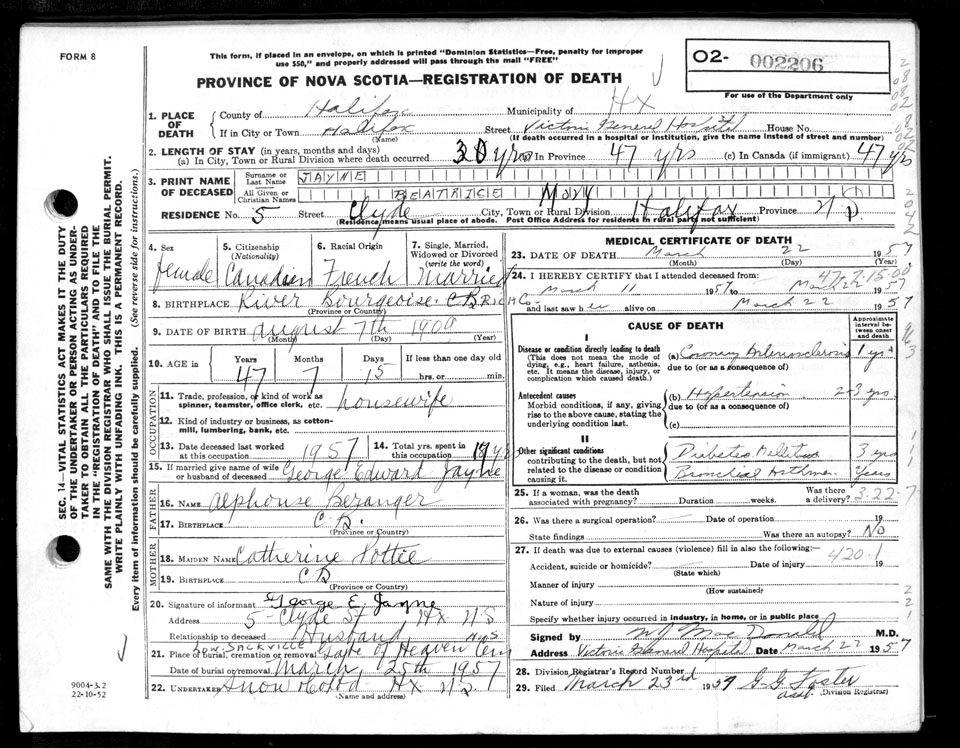 FORM 8
This form, if placed in an envelope, on which is printed "Dominion Statistics—Free, penalty for improper
use $50," and properly addressed will pass through the mail "FREE"
O2- 002206
For use of the Department only
PROVINCE OF NOVA SCOTIA—REGISTRATION OF DEATH
1. PLACE OF DEATH
County of Halifax Municipality of HX
If in City or Town Halifax Street Victoria General Hospital House No.
(Name) (If death occurred in a hospital or institution, give the name instead of street and number)
2. LENGTH OF STAY (in years, months and days)
(a) In City, Town or Rural Division where death occurred 30 yrs (b) In Province 47 yrs (c) In Canada (if immigrant) 47 yrs
3. PRINT NAME OF DECEASED
Surname or Last Name JAYNE
All Given or Christian Names BEATRICE Mary
RESIDENCE No. 5 Street Clyde City, Town or Rural Division Halifax Province N.S.
(Residence means usual place of abode. Post Office Address for residents in rural parts not sufficient)
4. Sex
female
5. Citizenship (Nationality)
Canadian
6. Racial Origin
French
7. Single, Married, Widowed or Divorced (write the word)
Married
8. BIRTHPLACE River Bourgeoise C B RICH Co
(Province or Country)
9. DATE OF BIRTH August 7th 1909
(Month) (Day) (Year)
10. AGE in Years Months Days If less than one day old
47 7 15 hrs. or min.
OCCUPATION
11. Trade, profession, or kind of work as spinner, teamster, office clerk, etc. housewife
12. Kind of industry or business, as cotton-mill, lumbering, bank, etc.
13. Date deceased last worked at this occupation 1957
14. Total yrs. spent in this occupation 19 yrs
15. If married give name of wife or husband of deceased George Edward Jayne
FATHER
16. NAME Alphouse Beranger
17. BIRTHPLACE C.B.
(Province or Country)
MOTHER
18. MAIDEN NAME Catherine Pottie
19. BIRTHPLACE C B
(Province or Country)
20. Signature of informant George E. Jayne
Address 5- Clyde St Hx N-S
Relationship to deceased Husband
LOW. SACKVILLE N.S
21. Place of burial, cremation or removal Gate of Heaven Cem
Date of burial or removal March 25th 1957
22. UNDERTAKER Snow Co Ltd Hx N.S.
(Name and address)
MEDICAL CERTIFICATE OF DEATH
23. DATE OF DEATH March 22 1957
(Month) (Day) (Year)
47-7-15-00
24. I HEREBY CERTIFY that I attended deceased from:
March 11 1957 to March 22 1957
and last saw her alive on March 22 1957
CAUSE OF DEATH
Approximate interval between onset and death
I
Disease or condition directly leading to death
(This does not mean the mode of dying, e.g., heart failure, asthenia, etc. It means the disease, injury, or complication which caused death.)
(a) Coronary Arteriosclerosis 1 yr+
due to (or as a consequence of)
Antecedent causes
Morbid conditions, if any, giving rise to the above cause, stating the underlying condition last.
(b) Hypertension 2-3 yrs
due to (or as a consequence of)
(c)
II
Other significant conditions
contributing to the death, but not related to the disease or condition causing it.
Diabetes Mellitus 3 yrs
Bronchial Asthma Years
25. If a woman, was the death associated with pregnancy? Duration weeks. Was there a delivery?
3-22-7
26. Was there a surgical operation? Date of operation 19
State findings Was there an autopsy? No
27. If death was due to external causes (violence) fill in also the following:—
420-1
Accident, suicide or homicide? Date of injury 19
(State which)
Manner of injury
(How sustained)
Nature of injury
Specify whether injury occurred in industry, in home, or in public place
Signed by MacDonald M.D.
Address Victoria General Hospital Date March 22 1957
28. Division Registrar's Record Number
29. Filed March 23rd 1957 G G Foster
asst. (Division Registrar)
SEC. 14—VITAL STATISTICS ACT MAKES IT THE DUTY
OF THE UNDERTAKER OR PERSON ACTING AS UNDER-
TAKER TO OBTAIN ALL THE PARTICULARS REQUIRED
IN THE "REGISTRATION OF DEATH" AND TO FILE THE
SAME WITH THE DIVISION REGISTRAR WHO SHALL ISSUE THE BURIAL PERMIT.
WRITE PLAINLY WITH UNFADING INK. THIS IS A PERMANENT RECORD.
Every item of information should be carefully supplied. (See reverse side for instructions.)
9004-3.2
22-10-52